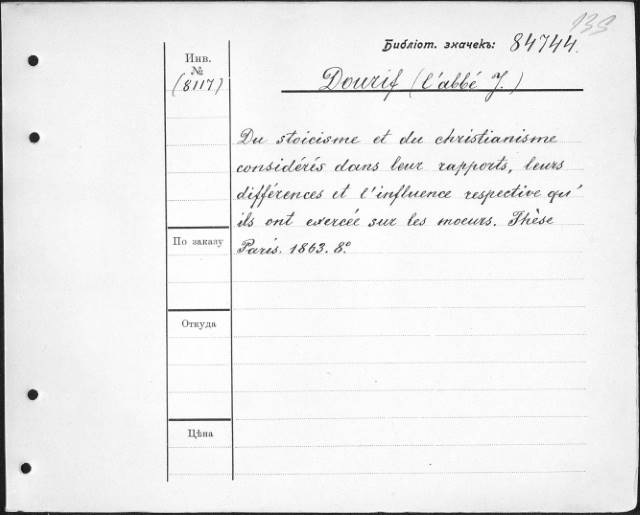 Библіот. значекъ: 84744.
Инв.
№
(8117)
Dourif (l'abbé J.)
Du stoicisme et du christianisme
considérés dans leur rapports, leurs
différences et l'influence respective qu'
ils ont exercée sur les moeurs. Thèse
По заказу
Paris. 1863. 8º
Откуда
Цѣна